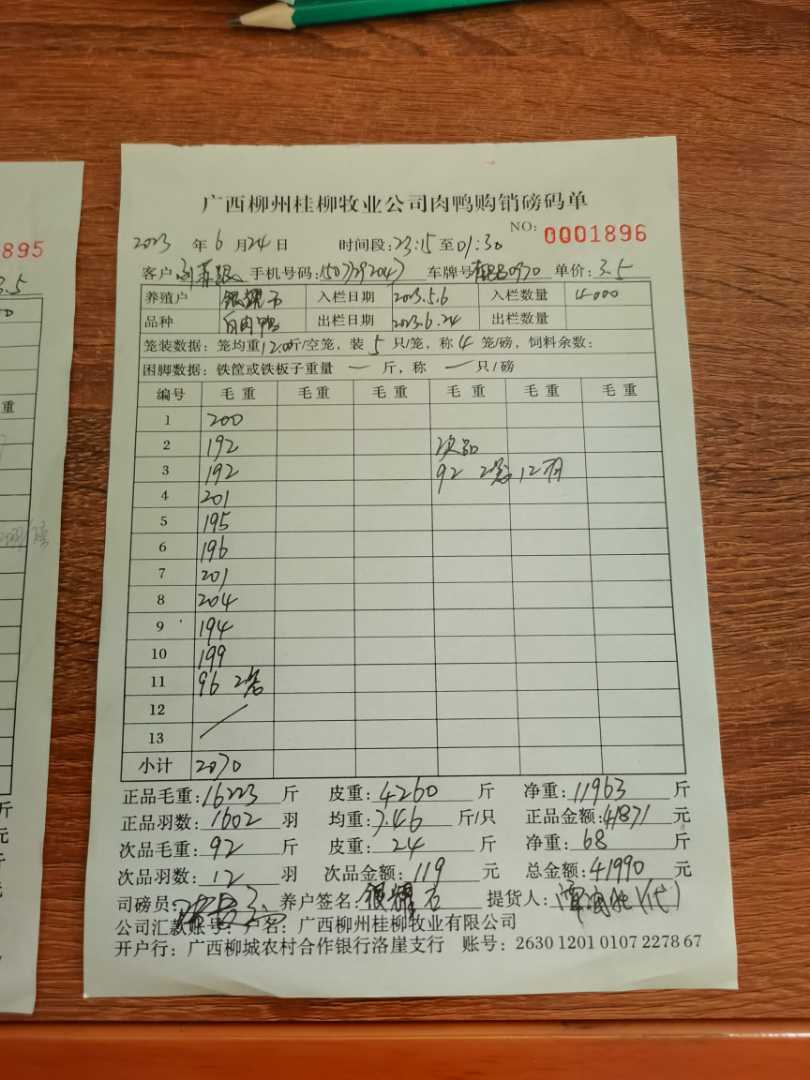 895
3.5
重
斤
元
斤
元
广西柳州桂柳牧业公司肉鸭购销磅码单
NO: 0001896
2023 年 6 月 24 日 时间段: 23:15 至 01:30
客户 手机号码: 车牌号 0970 单价: 3.5
养殖户 银耀石 入栏日期 2023.5.6 入栏数量 4000
品种 白肉鸭 出栏日期 2023.6.24 出栏数量
笼装数据: 笼均重12.00斤/空笼, 装 5 只/笼, 称 4 笼/磅, 饲料余数:
困脚数据: 铁筐或铁板子重量 一 斤, 称 一 只/磅
编号 毛重 毛重 毛重 毛重 毛重 毛重
1 200
2 192 次品
3 192 92 2笼 12羽
4 201
5 195
6 196
7 201
8 204
9 194
10 199
11 96 2笼
12
13
小计 2070
正品毛重: 16223 斤 皮重: 4260 斤 净重: 11963 斤
正品羽数: 1602 羽 均重: 7.46 斤/只 正品金额: 41871 元
次品毛重: 92 斤 皮重: 24 斤 净重: 68 斤
次品羽数: 12 羽 次品金额: 119 元 总金额: 41990 元
司磅员: 养户签名: 银耀石 提货人: (代)
公司汇款账号: 户名: 广西柳州桂柳牧业有限公司
开户行: 广西柳城农村合作银行洛崖支行 账号: 2630 1201 0107 2278 67